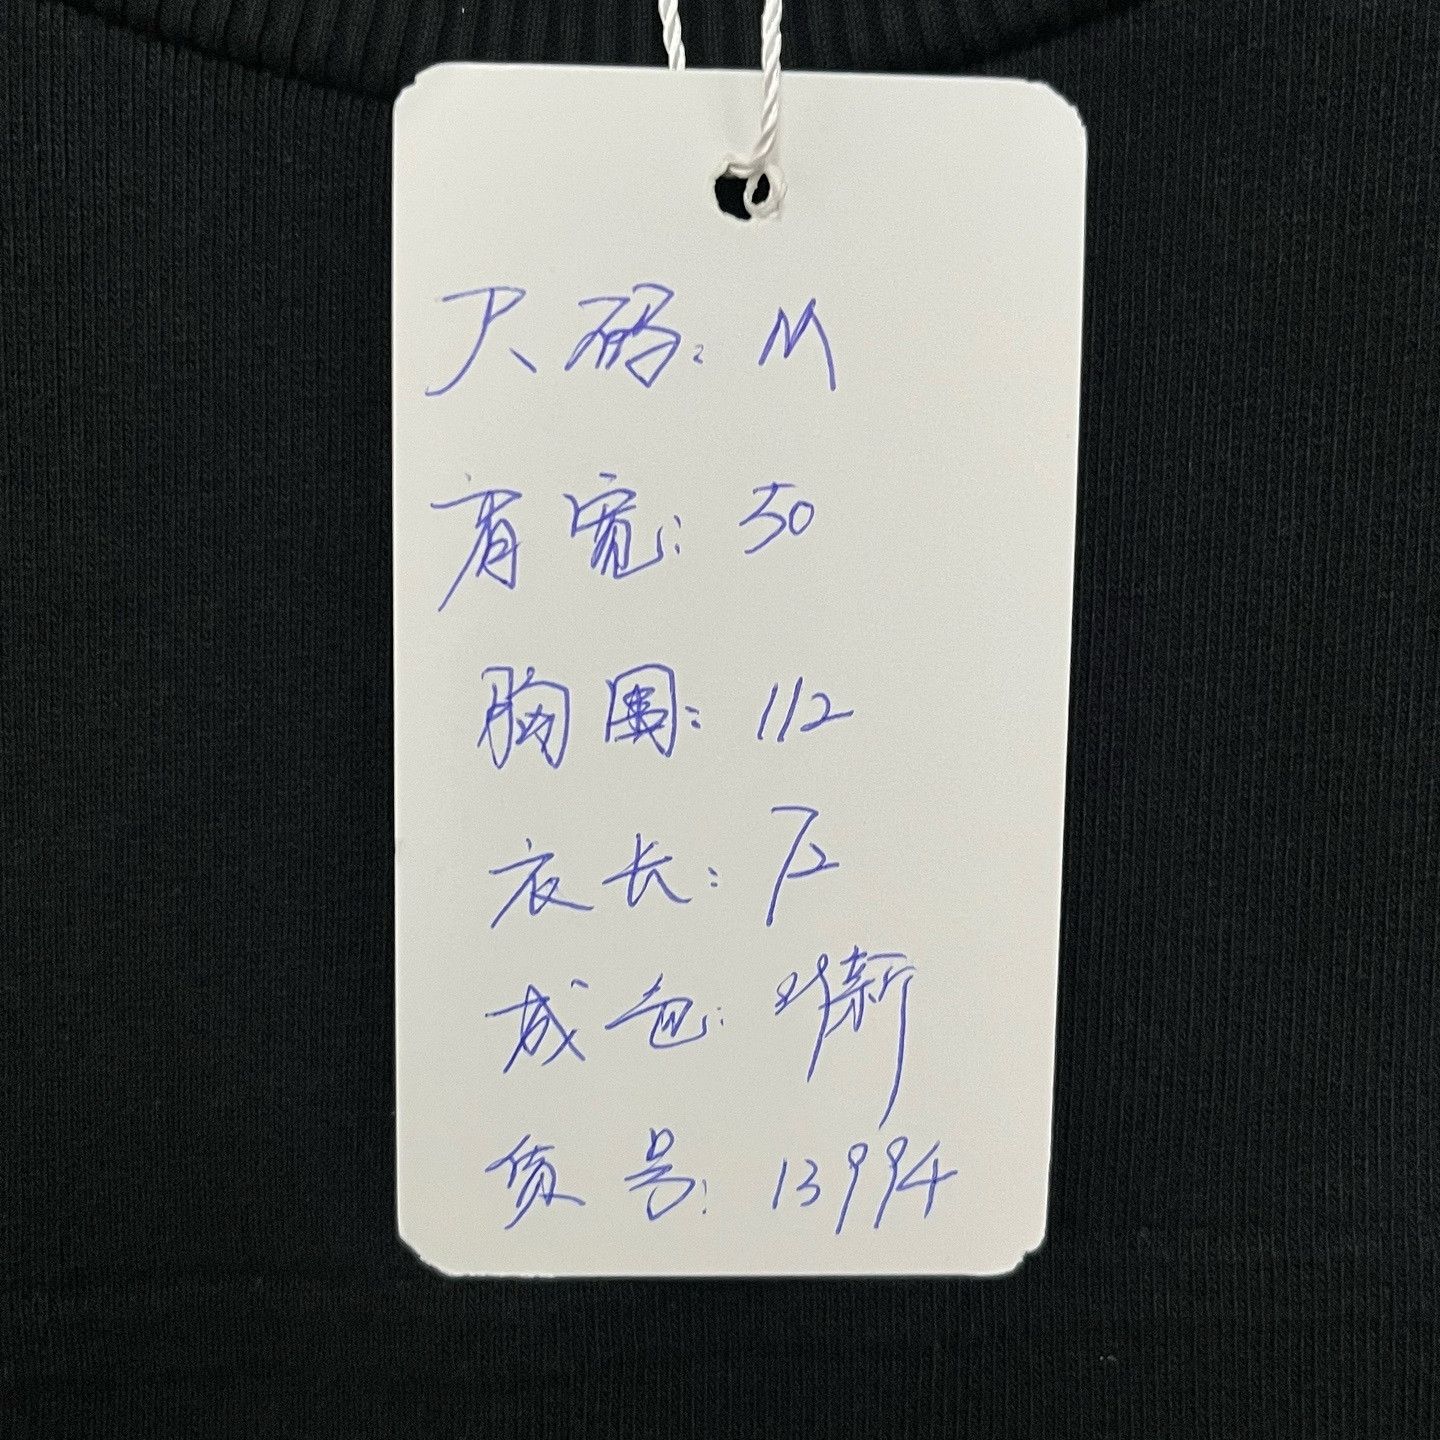 尺码: M
肩宽: 50
胸围: 112
衣长: 72
成色: 99新
货号: 13994